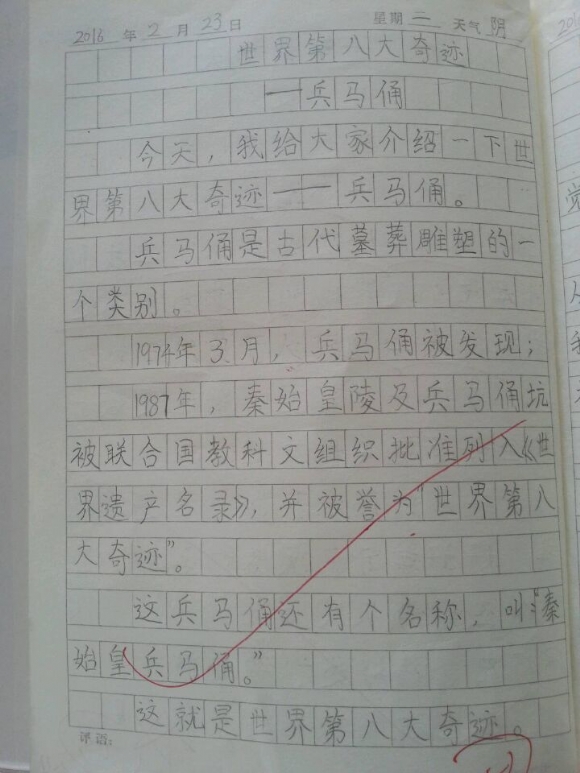 2016年2月23日 星期二 天气阴
世界第八大奇迹
——兵马俑
今天，我给大家介绍一下世
界第八大奇迹——兵马俑。
兵马俑是古代墓葬雕塑的一
个类别。
1974年3月，兵马俑被发现；
1987年，秦始皇陵及兵马俑坑
被联合国教科文组织批准列入《世
界遗产名录》，并被誉为“世界第八
大奇迹”。
这兵马俑还有个名称，叫：“秦
始皇兵马俑。”
这就是世界第八大奇迹。
评语：